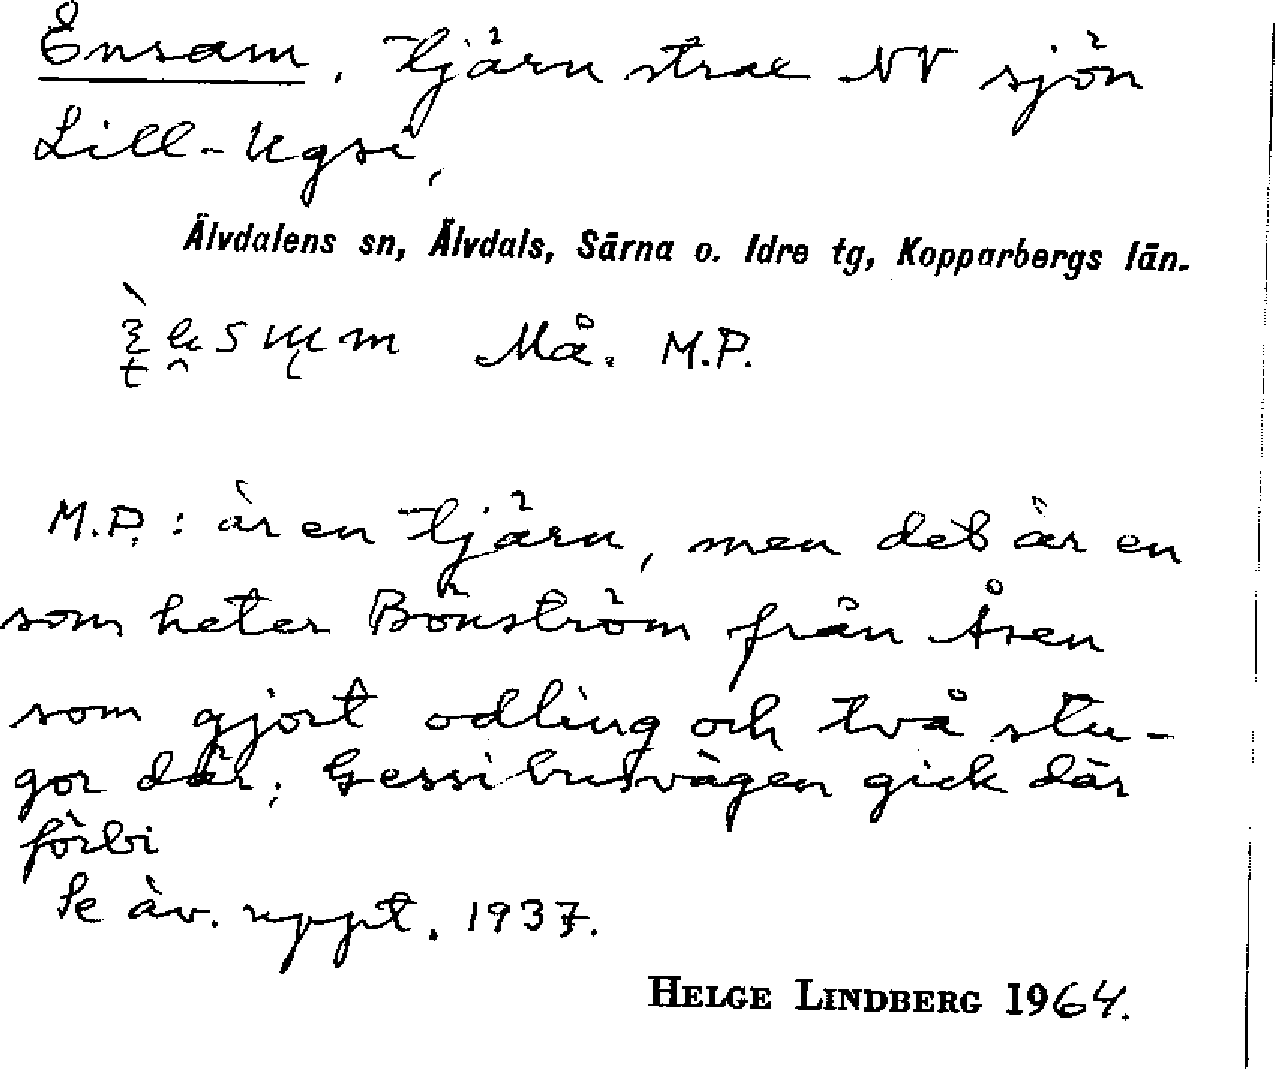 Ensam. tjärn strax NV sjön
Lill-Ugsi,
Älvdalens sn, Älvdals, Särna o. Idre tg, Kopparbergs län.
Må. M.P.
M.P.: är en tjärn, men det är en
som heter Bönström från Åsen
som gjort odling och två stu-
gor där; Gessibusvägen gick där
förbi
Se äv. uppt. 1937.
HELGE LINDBERG 1964.